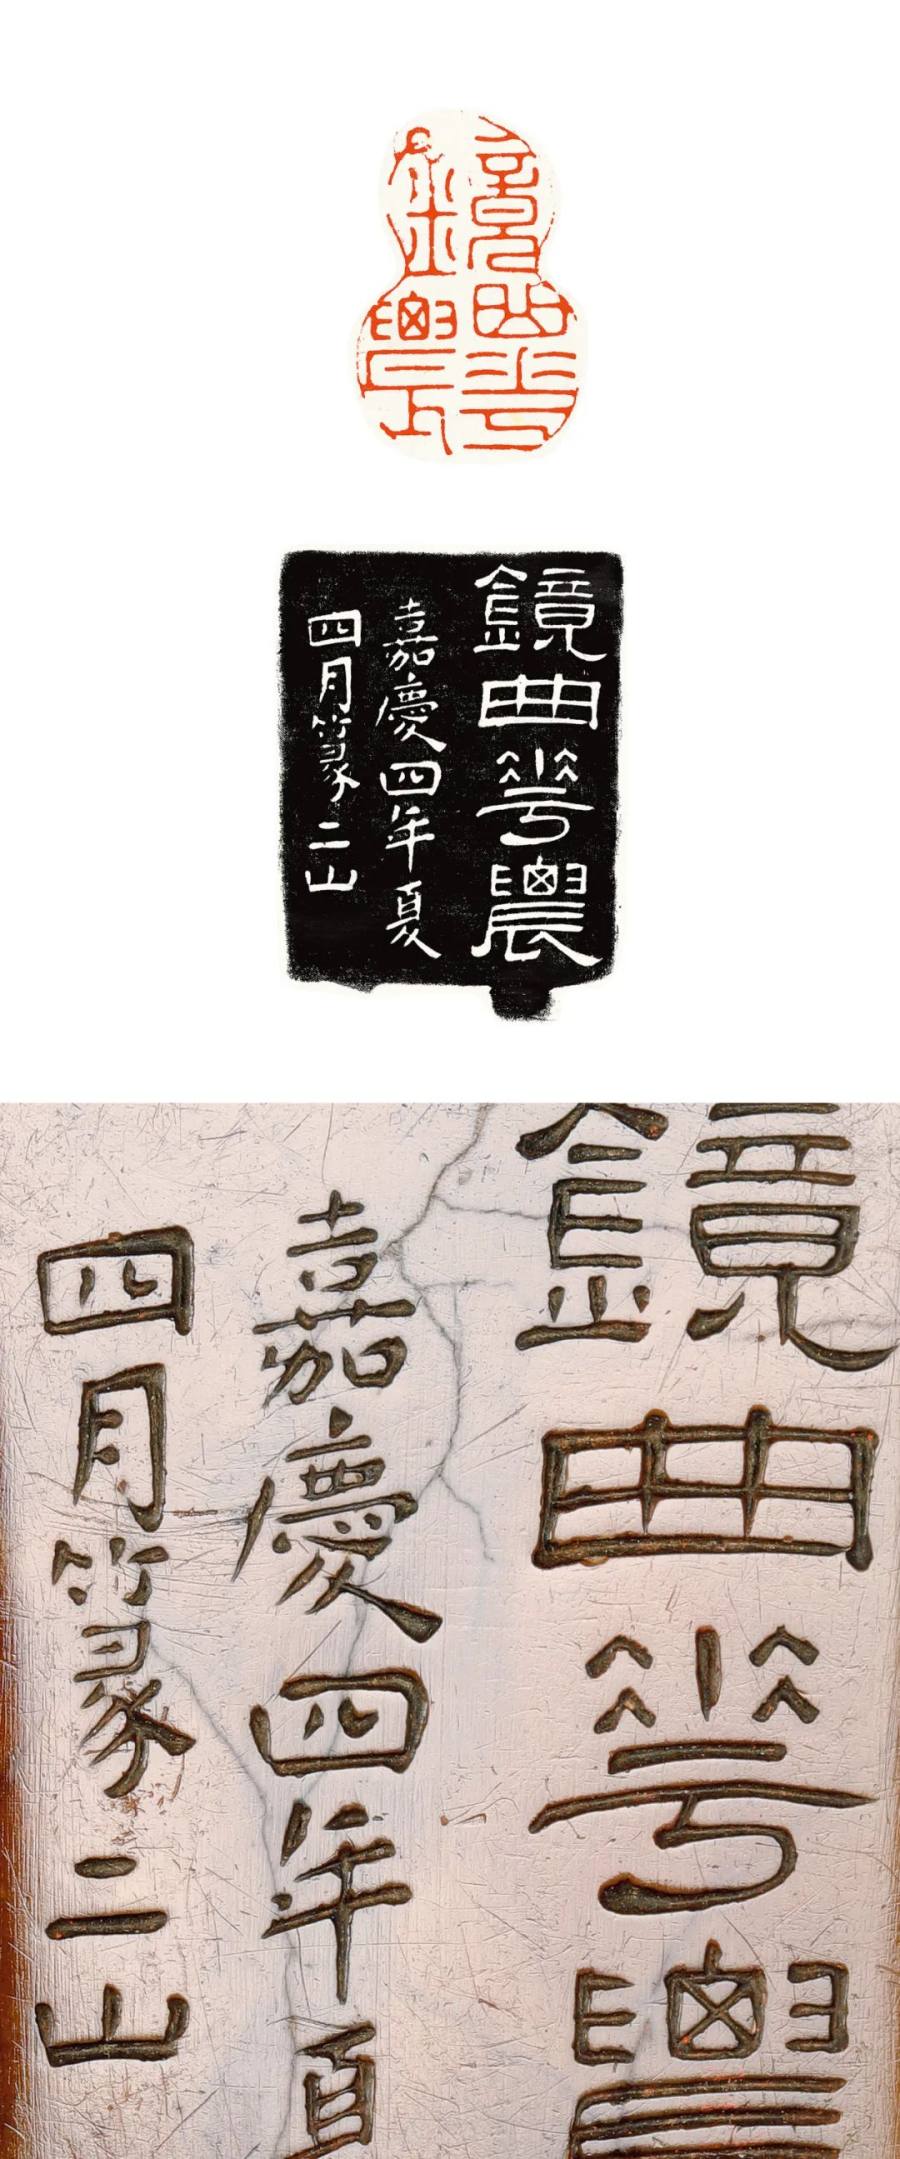 鏡曲華農
鏡曲華農
嘉慶四年夏
四月篆二山
鏡曲華農
嘉慶四年夏
四月篆二山